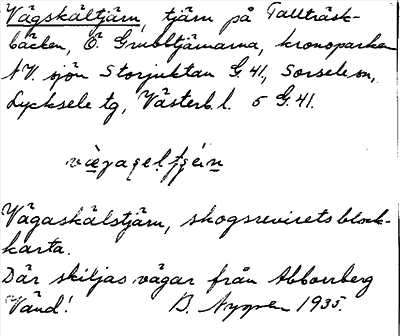 Vägskältjärn, tjärn på Tallträsk-
bäcken, Ö. Grubbltjärnarna, kronoparken
NV. sjön Storjuktan G. 41, Sorsele sn,
Lycksele tg, Västerb. l. 5 G. 41.
Vägaskälstjärn, skogsrevirets block-
karta.
Där skiljas vägar från Abborrberg
Vänd! B. 1935.